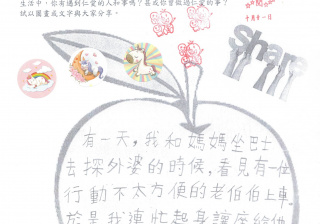 生活中,你有遇到仁愛的人和事嗎?甚或你曾做過仁愛的事?
試以圖畫或文字與大家分享。
十月廿一日
Share
有一天,我和媽媽坐巴士
去探外婆的時候,看見有一位
行動不太方便的老伯伯上車。
於是我連忙起身讓座給他